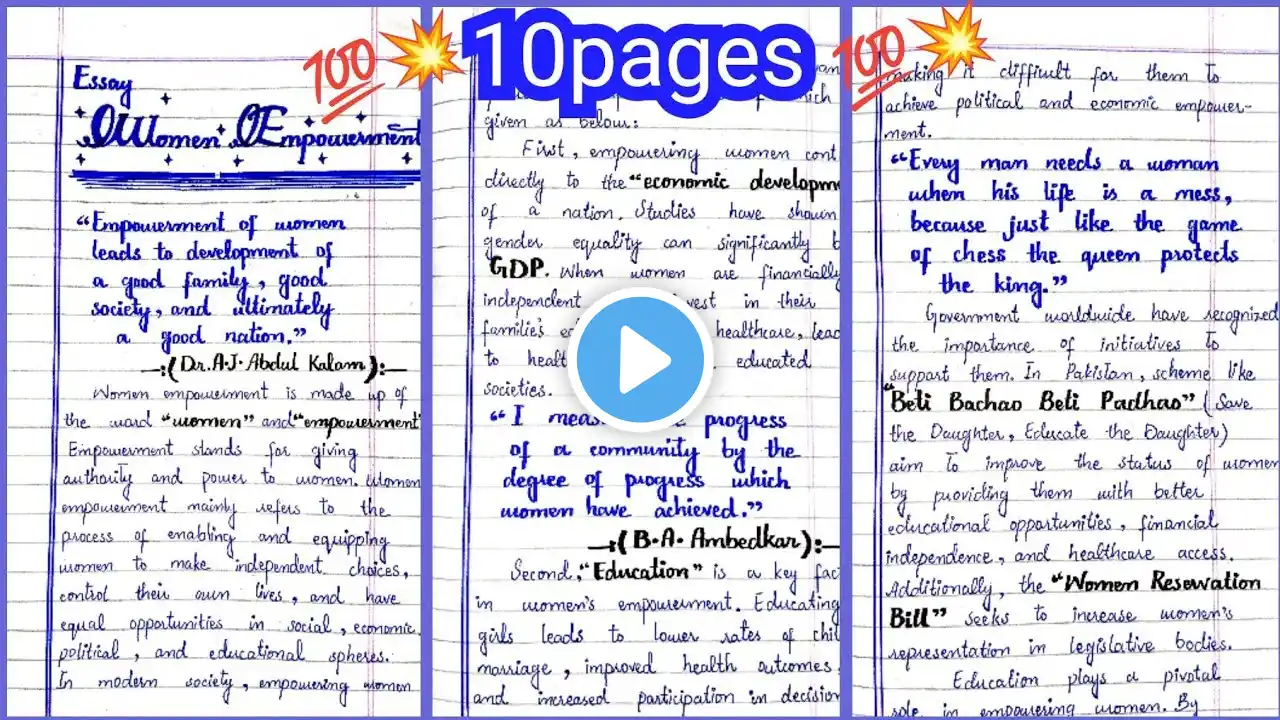 10pages
Essay
Women Empowerment
“Empowerment of women
leads to development of
a good family, good
society, and ultimately
a good nation.”
—:(Dr.A.J. Abdul Kalam):—
Women empowerment is made up of
the word “women” and “empowerment”
Empowerment stands for giving
authority and power to women. Women
empowerment mainly refers to the
process of enabling and equipping
women to make independent choices,
control their own lives, and have
equal opportunities in social, economic,
political, and educational spheres.
In modern society, empowering women
given as below:
First, empowering women cont
directly to the “economic developme
of a nation. Studies have shown
gender equality can significantly b
GDP. When women are financially
independent invest in their
familie's healthcare, lead
to educated
societies.
“I progress
of a community by the
degree of progress which
women have achieved.”
—:(B.A. Ambedkar):—
Second, “Education” is a key fac
in women's empowerment. Educating
girls leads to lower rates of chil
marriage, improved health outcomes,
and increased participation in decision
making it difficult for them to
achieve political and economic empower-
ment.
“Every man needs a woman
when his life is a mess,
because just like the game
of chess the queen protects
the king.”
Government worldwide have recognized
the importance of initiatives to
support them. In Pakistan, scheme like
“Beti Bachao Beti Padhao” (Save
the Daughter, Educate the Daughter)
aim to improve the status of women
by providing them with better
educational opportunities, financial
independence, and healthcare access.
Additionally, the “Women Reservation
Bill” seeks to increase women's
representation in legislative bodies.
Education plays a pivotal
role in empowering women. By